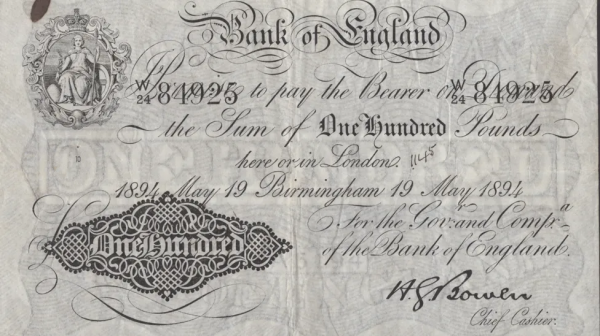 Bank of England
Promise to pay the Bearer on Demand
W/24 84925 W/24 84925
the Sum of One Hundred Pounds
here or in London. 1145
1894 May 19 Birmingham 19 May 1894
For the Gov:r and Comp:a
of the Bank of England.
One Hundred
H G Bowen
Chief Cashier.